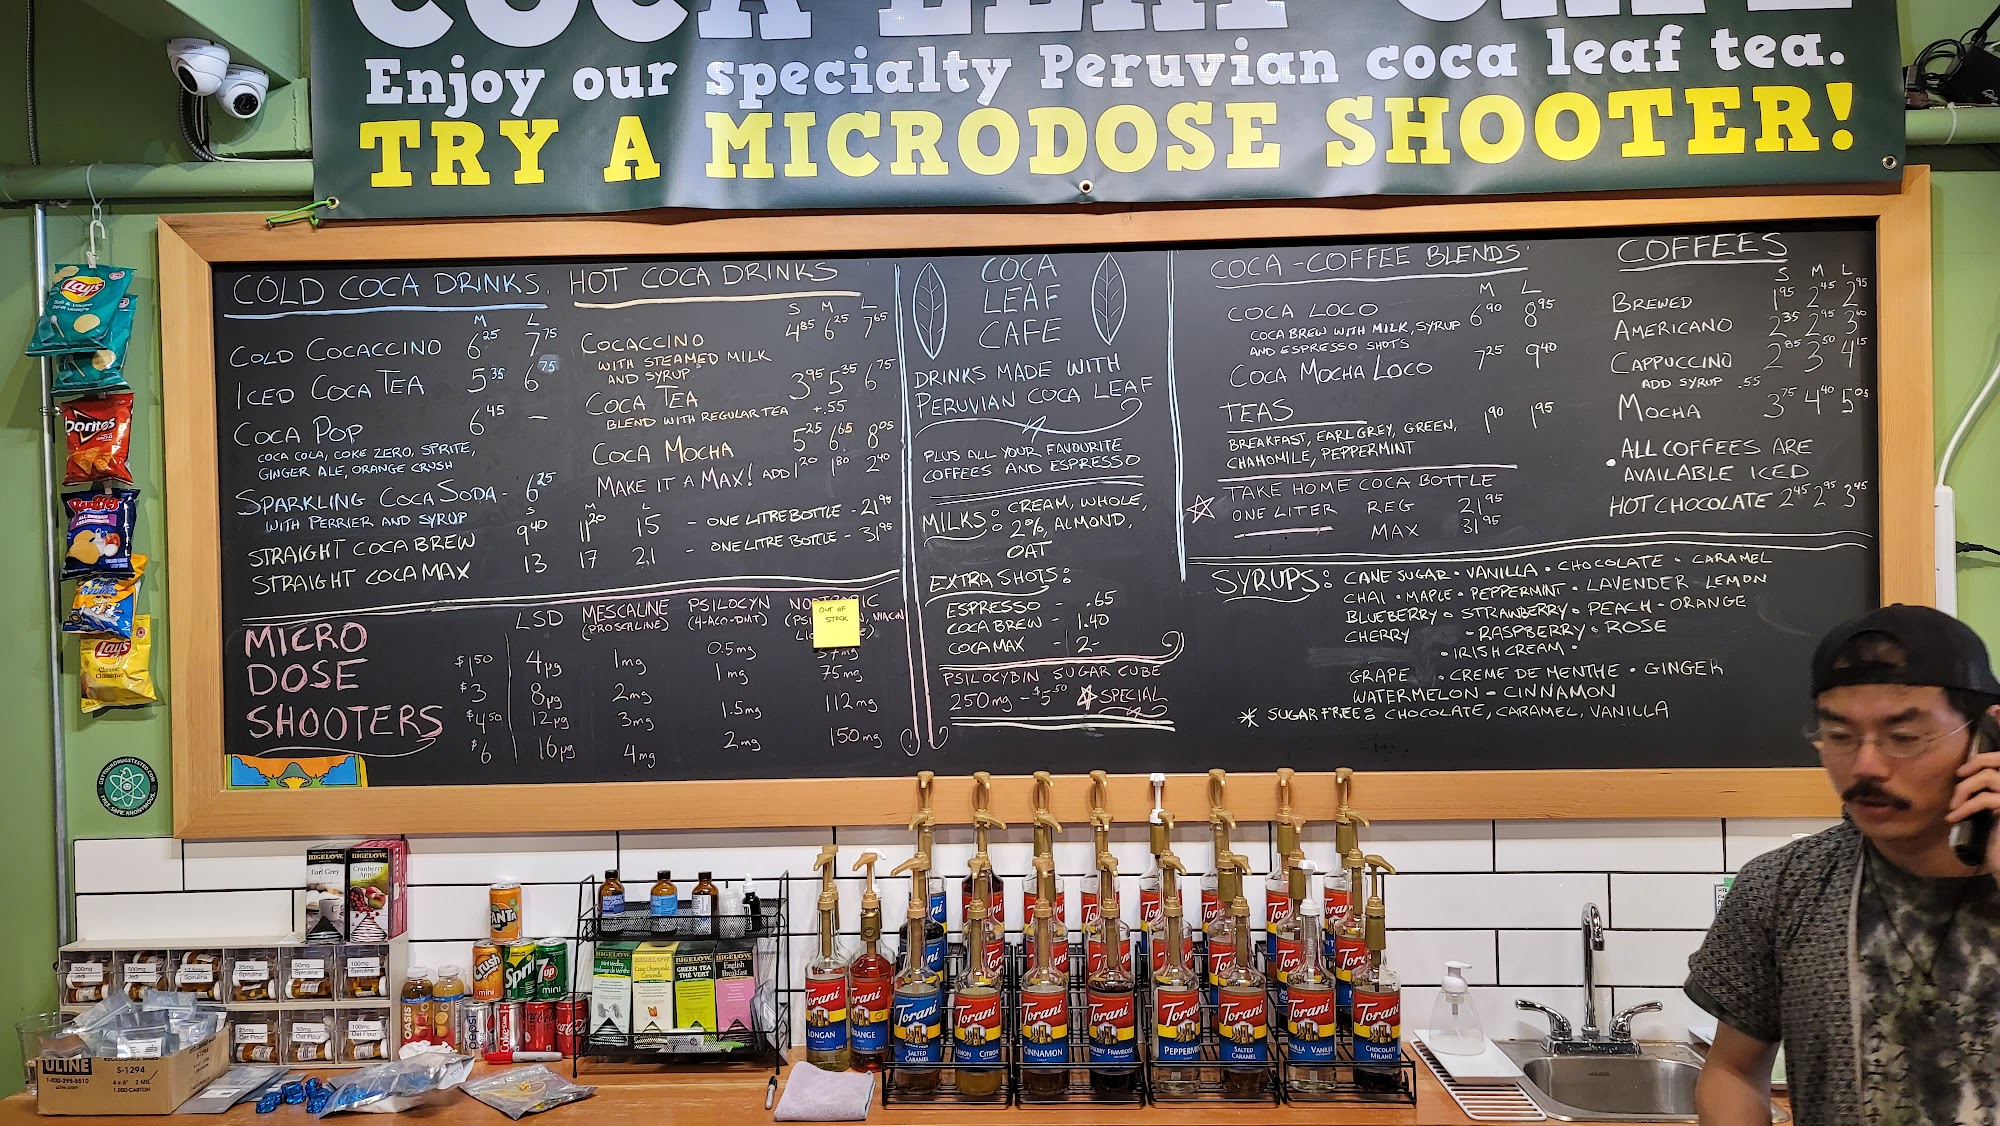 COCA LEAF CAFE
Enjoy our specialty Peruvian coca leaf tea.
TRY A MICRODOSE SHOOTER!
COLD COCA DRINKS.
M L
COLD COCACCINO 6.25 7.75
ICED COCA TEA 5.35 6.75
COCA POP 6.45 —
COCA COLA, COKE ZERO, SPRITE,
GINGER ALE, ORANGE CRUSH
SPARKLING COCA SODA - 6.25
WITH PERRIER AND SYRUP
S M L
STRAIGHT COCA BREW 9.40 11.20 15 - ONE LITRE BOTTLE - 21.95
STRAIGHT COCA MAX 13 17 21 - ONE LITRE BOTTLE - 31.95
HOT COCA DRINKS
S M L
COCACCINO 4.85 6.25 7.65
WITH STEAMED MILK
AND SYRUP
COCA TEA 3.95 5.35 6.75
BLEND WITH REGULAR TEA +.55
COCA MOCHA 5.25 6.65 8.05
MAKE IT A MAX! ADD 1.20 1.80 2.40
MICRO
DOSE
SHOOTERS
LSD MESCALINE PSILOCYN
(PROSCALINE) (4-ACO-DMT) NIACIN
OUT OF
STOCK
$1.50 4µg 1mg 0.5mg
$3 8µg 2mg 1mg 75mg
$4.50 12µg 3mg 1.5mg 112mg
$6 16µg 4mg 2mg 150mg
COCA
LEAF
CAFE
DRINKS MADE WITH
PERUVIAN COCA LEAF
PLUS ALL YOUR FAVOURITE
COFFEES AND ESPRESSO
MILKS: CREAM, WHOLE,
2%, ALMOND,
OAT
EXTRA SHOTS:
ESPRESSO - .65
COCA BREW - 1.40
COCA MAX - 2-
PSILOCYBIN SUGAR CUBE
250mg - $5.50 SPECIAL
COCA-COFFEE BLENDS
M L
COCA LOCO 6.90 8.95
COCA BREW WITH MILK, SYRUP
AND ESPRESSO SHOTS
COCA MOCHA LOCO 7.25 9.40
TEAS 1.90 1.95
BREAKFAST, EARL GREY, GREEN,
CHAMOMILE, PEPPERMINT
TAKE HOME COCA BOTTLE
ONE LITER REG 21.95
MAX 31.95
COFFEES
S M L
BREWED 1.95 2.45 2.95
AMERICANO 2.35 2.95
CAPPUCCINO 2.85 3.50 4.15
ADD SYRUP .55
MOCHA 3.75 4.40 5.05
• ALL COFFEES ARE
AVAILABLE ICED
HOT CHOCOLATE 2.45 2.95 3.45
SYRUPS: CANE SUGAR • VANILLA • CHOCOLATE • CARAMEL
CHAI • MAPLE • PEPPERMINT • LAVENDER - LEMON
BLUEBERRY • STRAWBERRY • PEACH • ORANGE
CHERRY - RASPBERRY • ROSE
• IRISH CREAM •
GRAPE • CREME DE MENTHE • GINGER
WATERMELON - CINNAMON
* SUGAR FREE: CHOCOLATE, CARAMEL, VANILLA
Lay's
Doritos
Ruffles
Lay's
Classic
GETYOURDRUGSTESTED.COM
FREE. SAFE. ANONYMOUS.
BIGELOW
Earl Grey
BIGELOW
Cranberry
Apple
FANTA
Crush
mini
Sprite
7up
mini
OASIS
pepsi
BIGELOW
BIGELOW
BIGELOW
GREEN TEA
THÉ VERT
BIGELOW
English
Breakfast
300mg
Jedi
500mg
Jedi
Spirulina
25mg
Spirulina
50mg
Spirulina
100mg
Spirulina
25mg
Oat Flour
50mg
Oat Flour
100mg
Oat Flour
ULINE
S-1294
1-800-295-5510
4 x 6" 2 MIL
1,000/CARTON
Torani
LONGAN
Torani
ORANGE
Torani
SALTED
CARAMEL
Torani
Torani
CINNAMON
Torani
Torani
PEPPERMINT
Torani
SALTED
CARAMEL
Torani
VANILLA
Torani
CHOCOLATE
MILANO